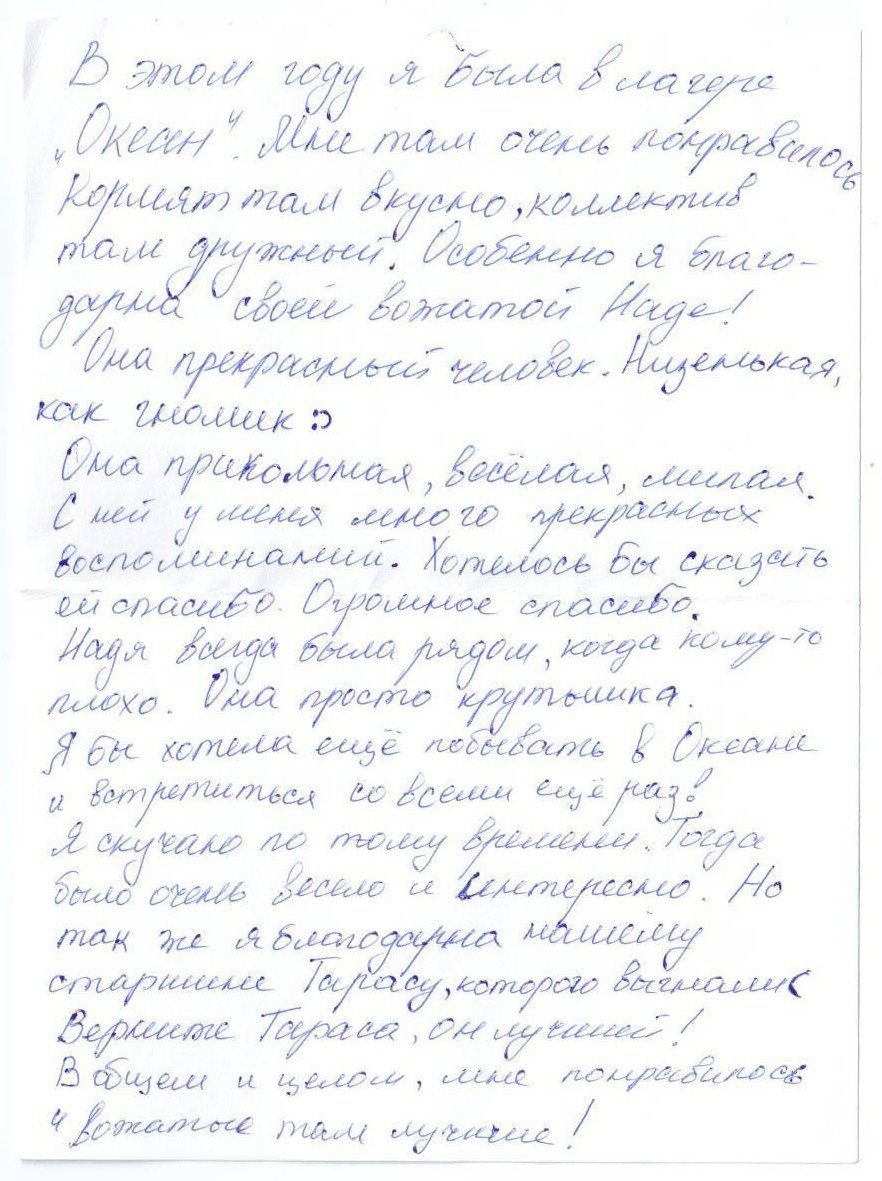 В этом году я была в лагере
„Океан". Мне там очень понравилось
Кормят там вкусно, коллектив
там дружный. Особенно я благо-
дарна своей вожатой Наде!
Она прекрасный человек. Низенькая,
как гномик :)
Она прикольная, весёлая, милая.
С ней у меня много прекрасных
воспоминаний. Хотелось бы сказать
ей спасибо. Огромное спасибо.
Надя всегда была рядом, когда кому-то
плохо. Она просто крутышка.
Я бы хотела ещё побывать в Океане
и встретиться со всеми ещё раз!
Я скучаю по тому времени. Тогда
было очень весело и интересно. Но
так же я благодарна нашему
старшине Тарасу, которого выгнали(
Верните Тараса, он лучший!
В общем и целом, мне понравилось
и вожатые там лучшие!